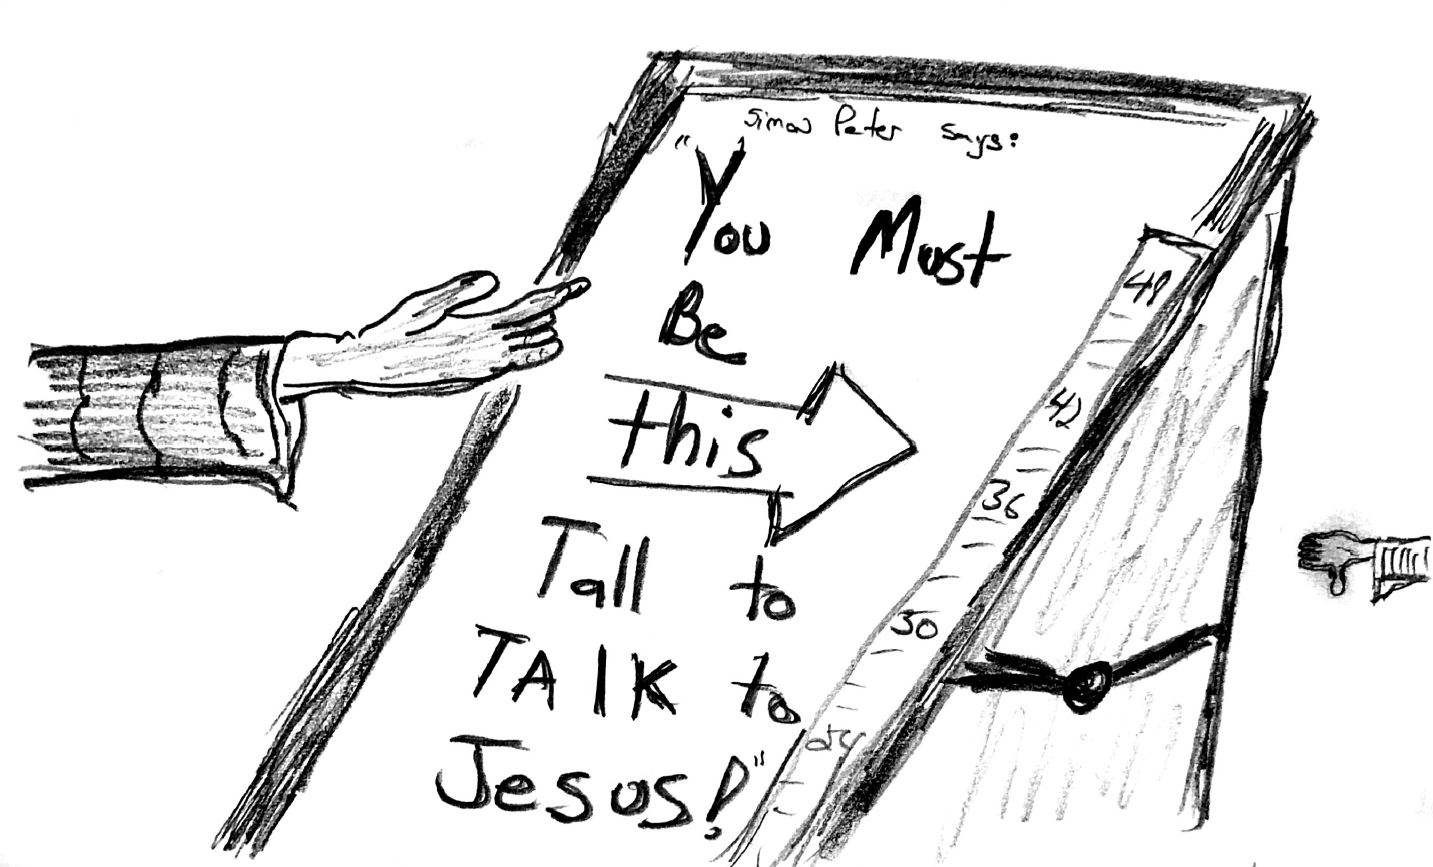 Simon Peter says:
"You Must
Be
this
Tall to
TAlK to
Jesus!"
48
42
36
30
24